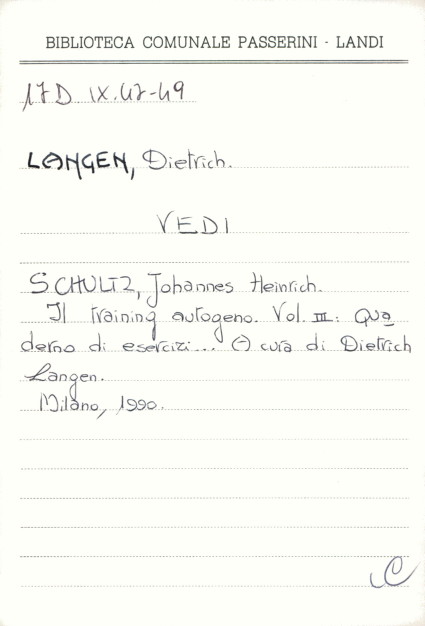 BIBLIOTECA COMUNALE PASSERINI - LANDI
17D IX.47-49
LANGEN, Dietrich.
VEDI
SCHULTZ, Johannes Heinrich.
Il training autogeno. Vol. III: Qua
derno di esercizi... A cura di Dietrich
Langen.
Milano, 1990.
C